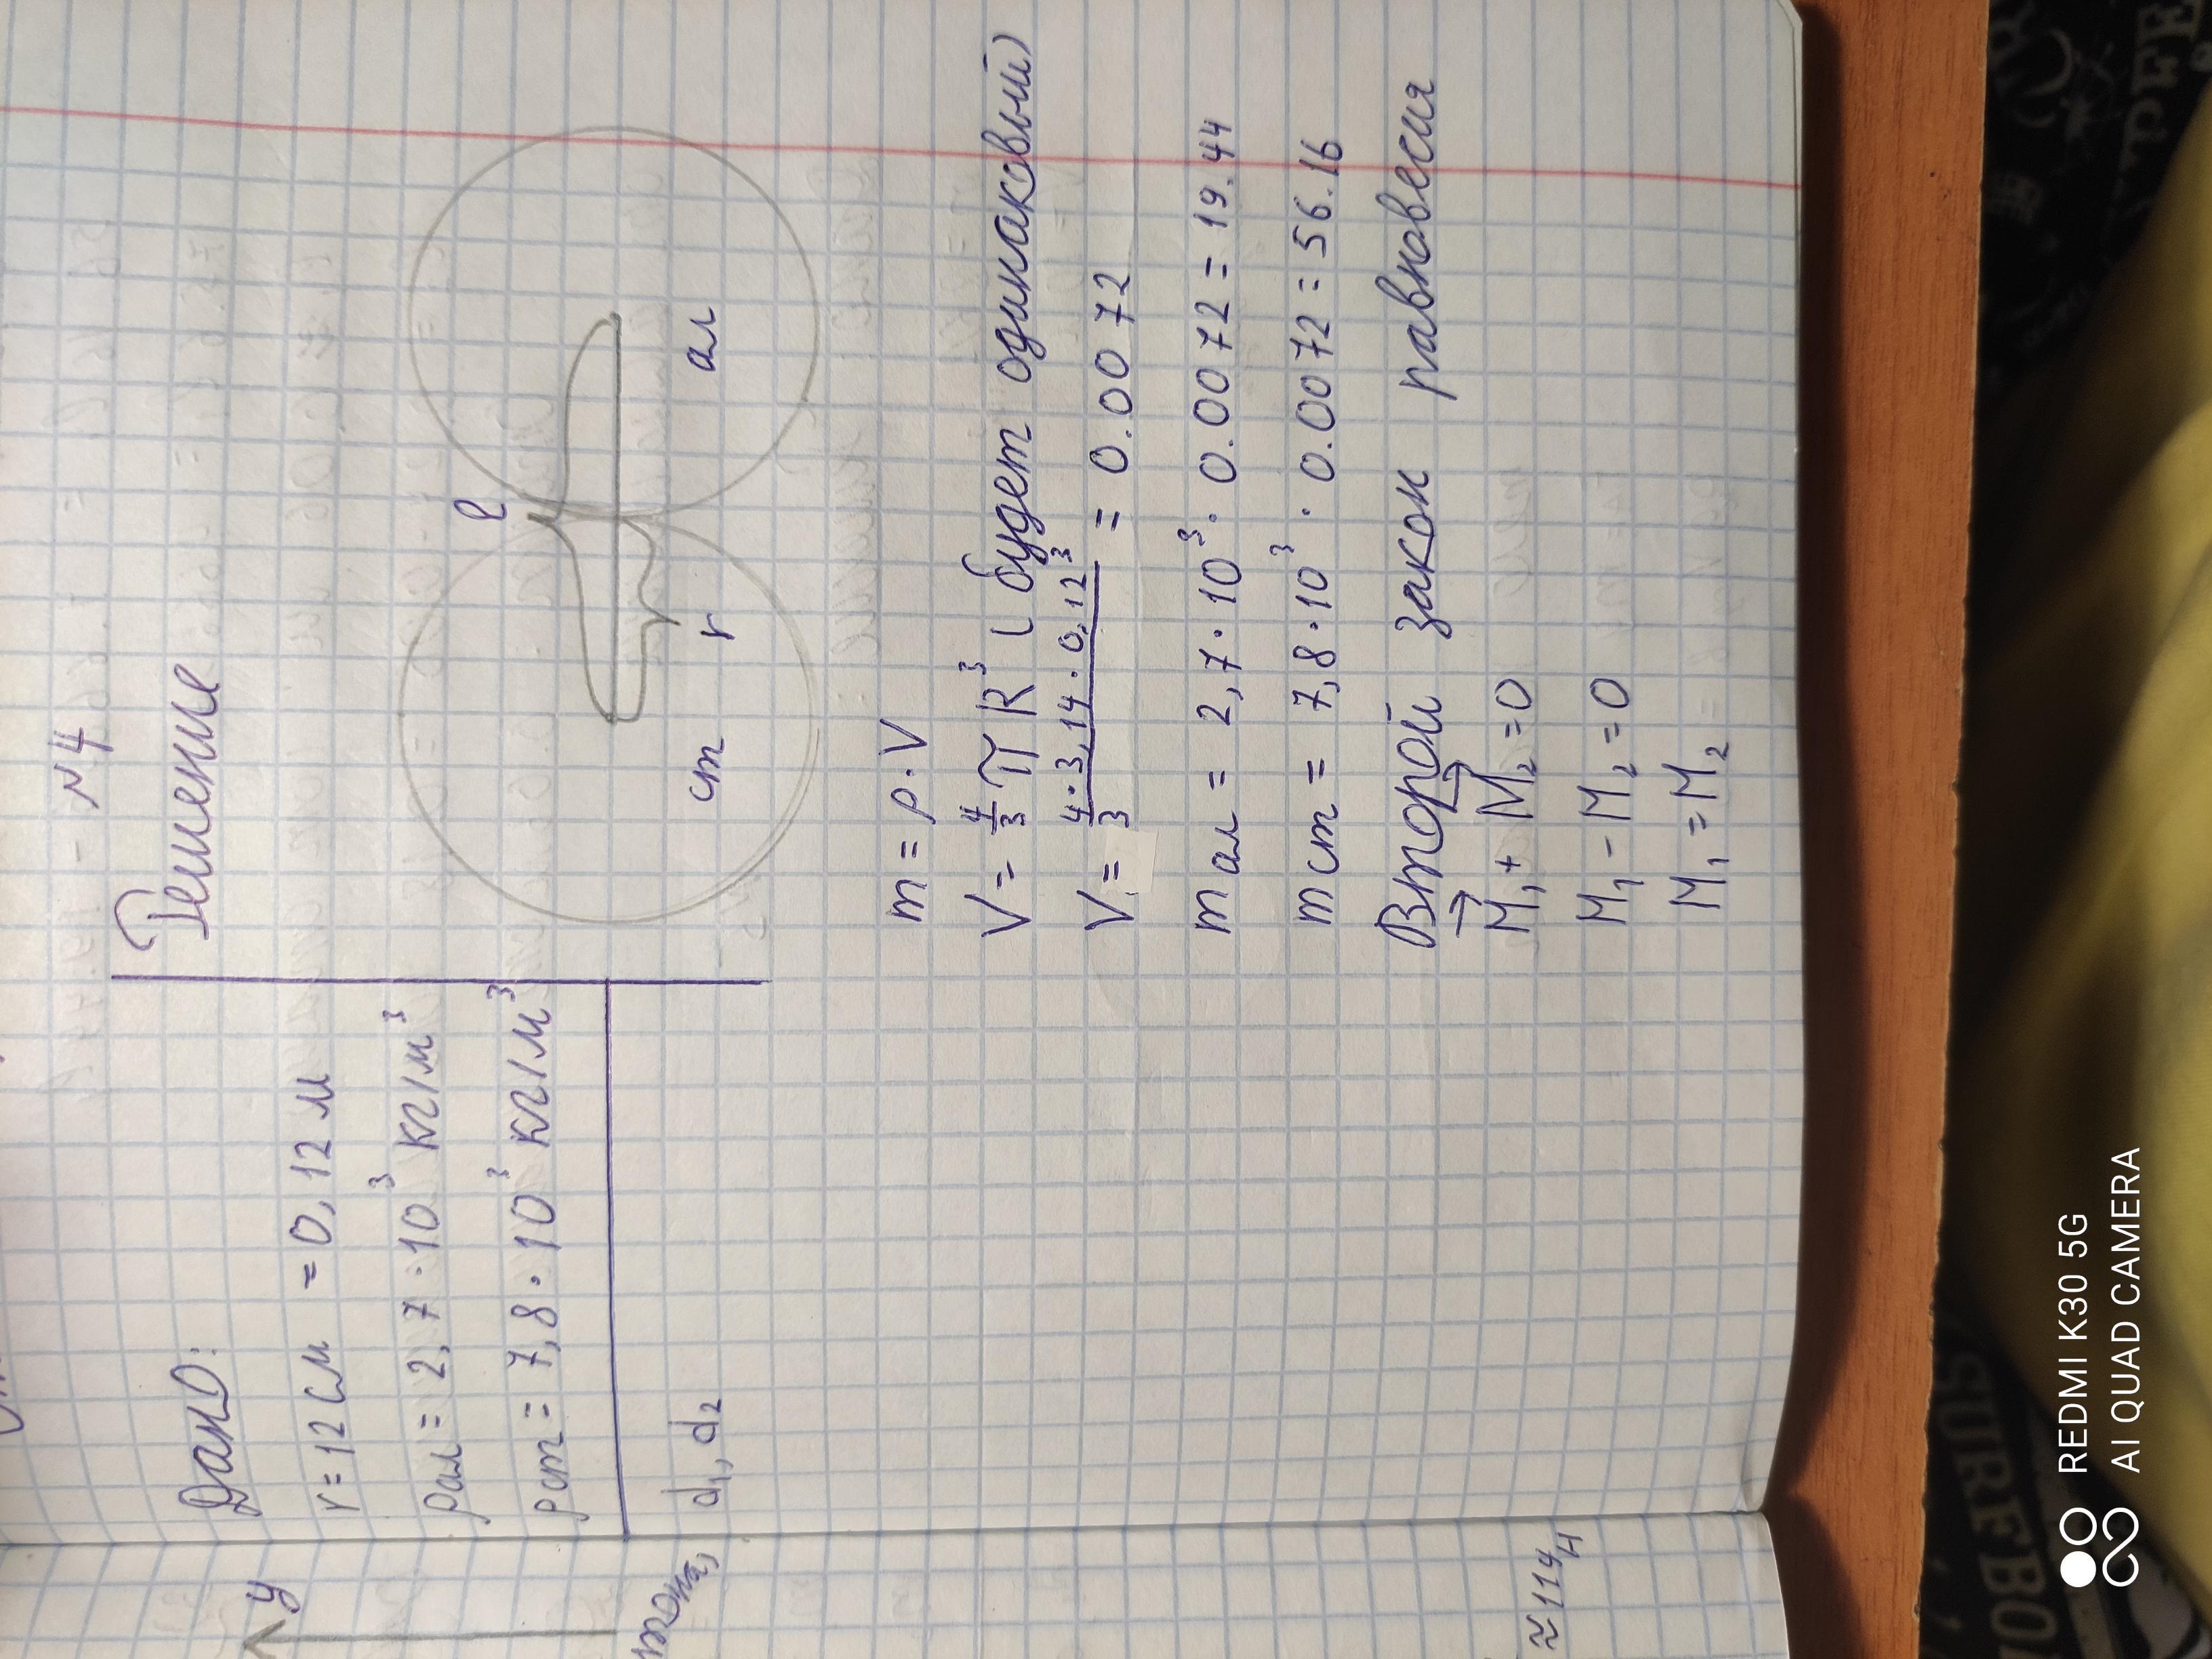 N4
Дано:
r = 12 см = 0,12 м
ρал = 2,7 · 10³ кг/м³
ρст = 7,8 · 10³ кг/м³
d₁, d₂
Решение
l
ст r ал
m = ρ · V
V = 4/3 π R³ (будет одинаковый)
V = 4·3,14·0,12³/3 = 0.0072
m ал = 2,7 · 10³ · 0.0072 = 19.44
m ст = 7,8 · 10³ · 0.0072 = 56.16
Второй закон равновесия
M₁ + M₂ = 0
M₁ - M₂ = 0
M₁ = M₂
y
≈ 114 Н
REDMI K30 5G
AI QUAD CAMERA